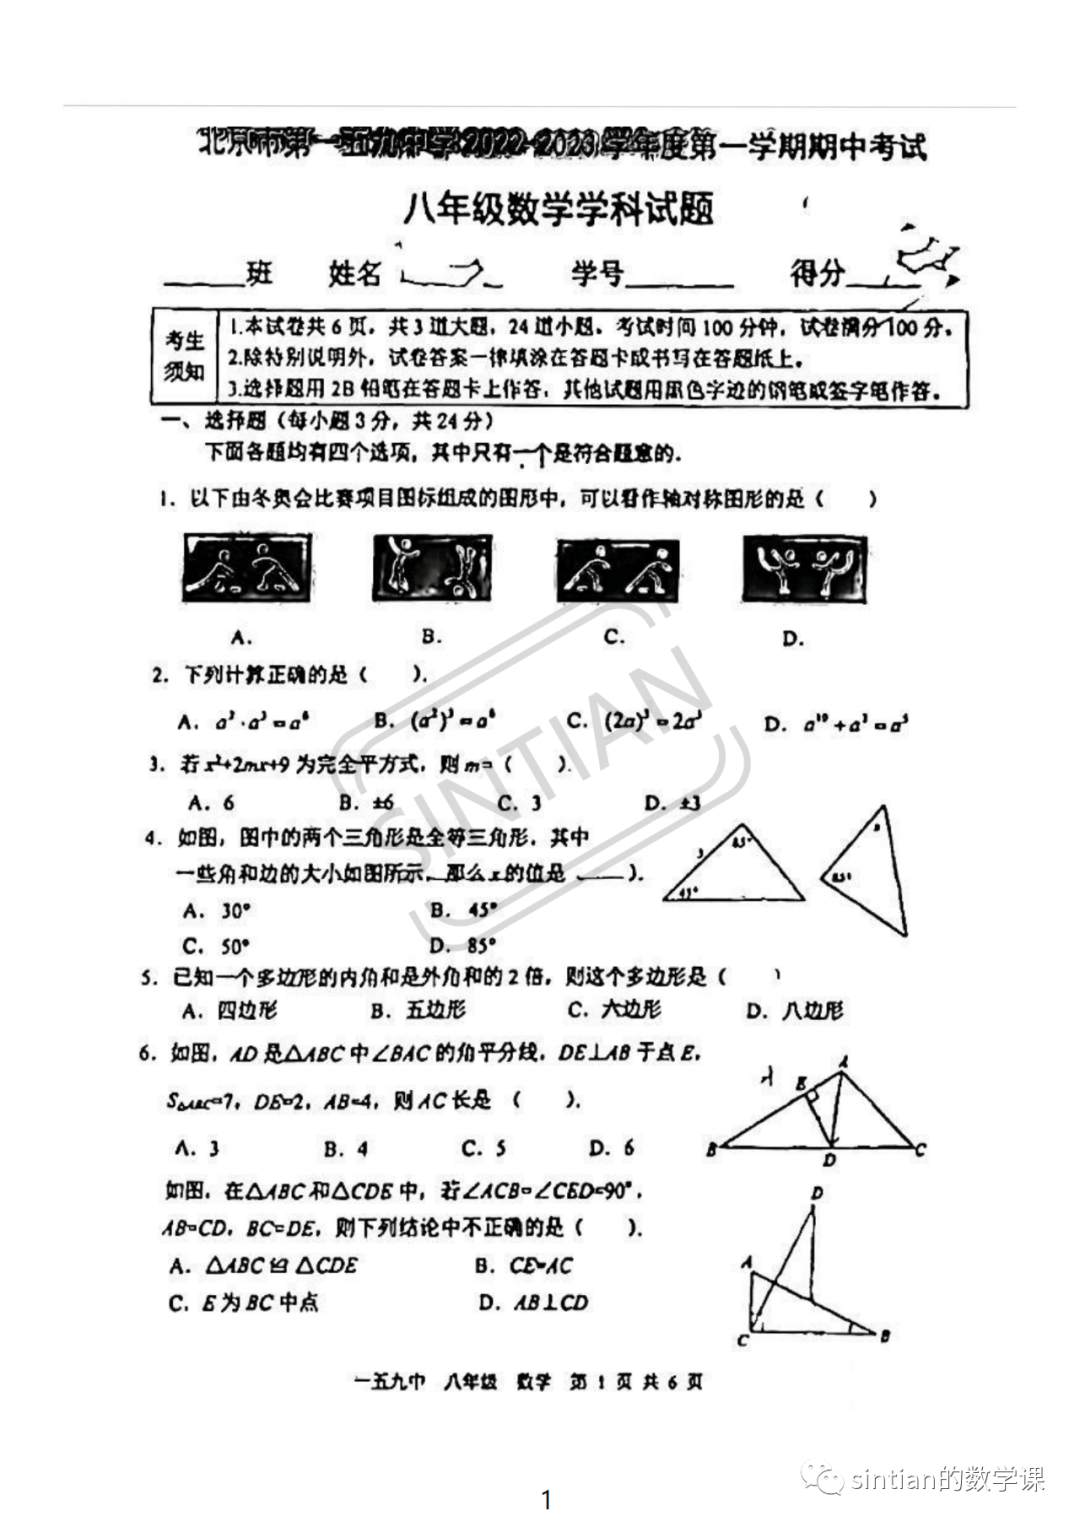 北京市第一五九中学2022-2023学年度第一学期期中考试
八年级数学学科试题
______班 姓名______ 学号______ 得分______
考生须知
1.本试卷共6页，共3道大题，24道小题。考试时间100分钟，试卷满分100分。
2.除特别说明外，试卷答案一律填涂在答题卡或书写在答题纸上。
3.选择题用2B铅笔在答题卡上作答，其他试题用黑色字迹的钢笔或签字笔作答。
一、选择题（每小题3分，共24分）
下面各题均有四个选项，其中只有一个是符合题意的.
1. 以下由冬奥会比赛项目图标组成的图形中，可以看作轴对称图形的是（ ）
A. B. C. D.
2. 下列计算正确的是（ ）.
A. a²·a³=a⁶ B. (a²)³=a⁶ C. (2a)³=2a³ D. a¹⁰÷a²=a⁵
3. 若x²+2mx+9为完全平方式，则m=（ ）.
A. 6 B. ±6 C. 3 D. ±3
4. 如图，图中的两个三角形是全等三角形，其中
一些角和边的大小如图所示，那么x的值是（ ）.
A. 30° B. 45°
C. 50° D. 85°
3 85° 45° 85°
5. 已知一个多边形的内角和是外角和的2倍，则这个多边形是（ ）
A. 四边形 B. 五边形 C. 六边形 D. 八边形
6. 如图，AD是△ABC中∠BAC的角平分线，DE⊥AB于点E，
S△ABC=7，DE=2，AB=4，则AC长是（ ）.
A. 3 B. 4 C. 5 D. 6
A E B D C
如图，在△ABC和△CDE中，若∠ACB=∠CED=90°，
AB=CD，BC=DE，则下列结论中不正确的是（ ）.
A. △ABC≌△CDE B. CE=AC
C. E为BC中点 D. AB⊥CD
D A C B
一五九中 八年级 数学 第1页共6页
SINTIAN
sintian的数学课
1